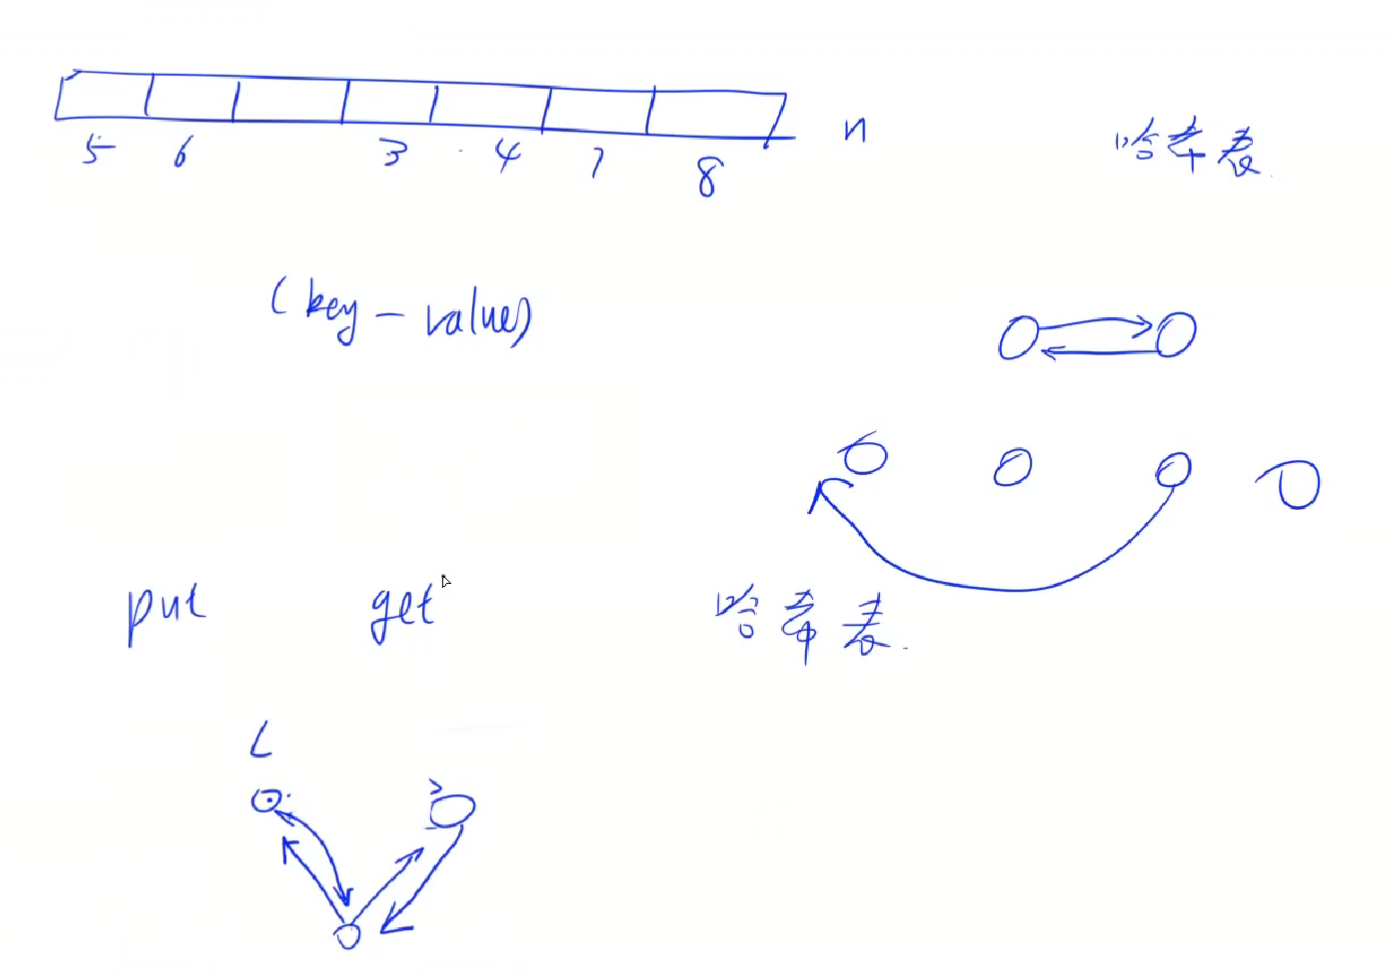 5 6 3 4 7 8 n
哈希表
(key - value)
put get 哈希表.
L